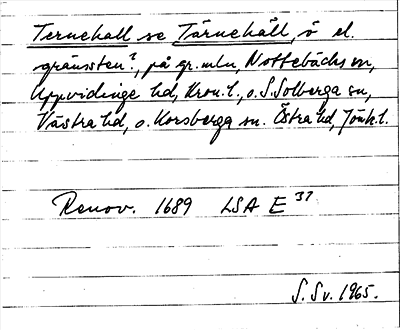 Ternehall se Tärnehäll, ö el.
gränssten?, på gr. mln, Nottebäcks sn,
Uppvidinge hd, Kron. l., o. S. Solberga sn,
Västra hd, o. Korsberga sn. Östra hd, Jönk. l.
Renov. 1689 LSA E 37
S. Sv. 1965.